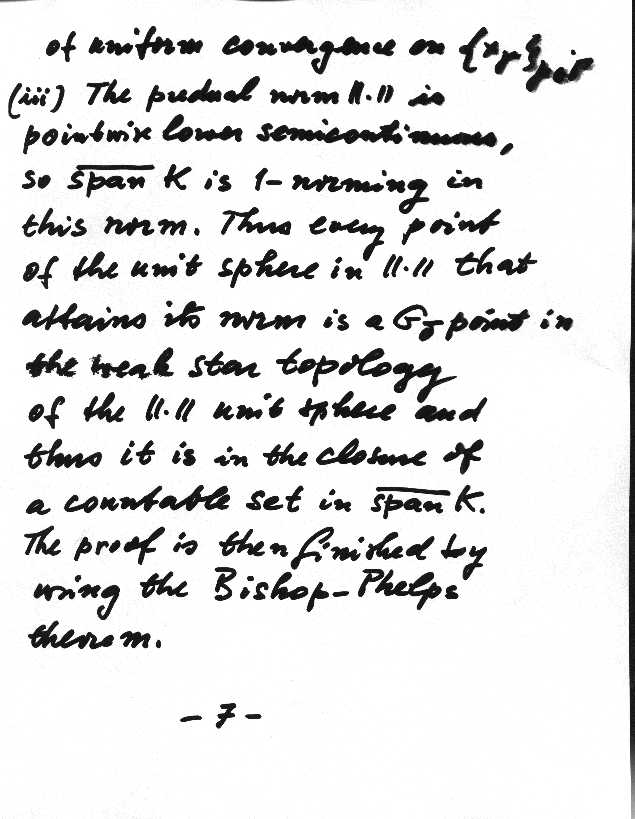 of uniform convergence on {x_γ}_{γ∈Γ}
(iii) The predual norm ||·|| is
pointwise lower semicontinuous,
so \overline{span} K is 1-norming in
this norm. Thus every point
of the unit sphere in ||·|| that
attains its norm is a G_δ point in
the weak star topology
of the ||·|| unit sphere and
thus it is in the closure of
a countable set in \overline{span} K.
The proof is then finished by
using the Bishop-Phelps
theorem.
- 7 -